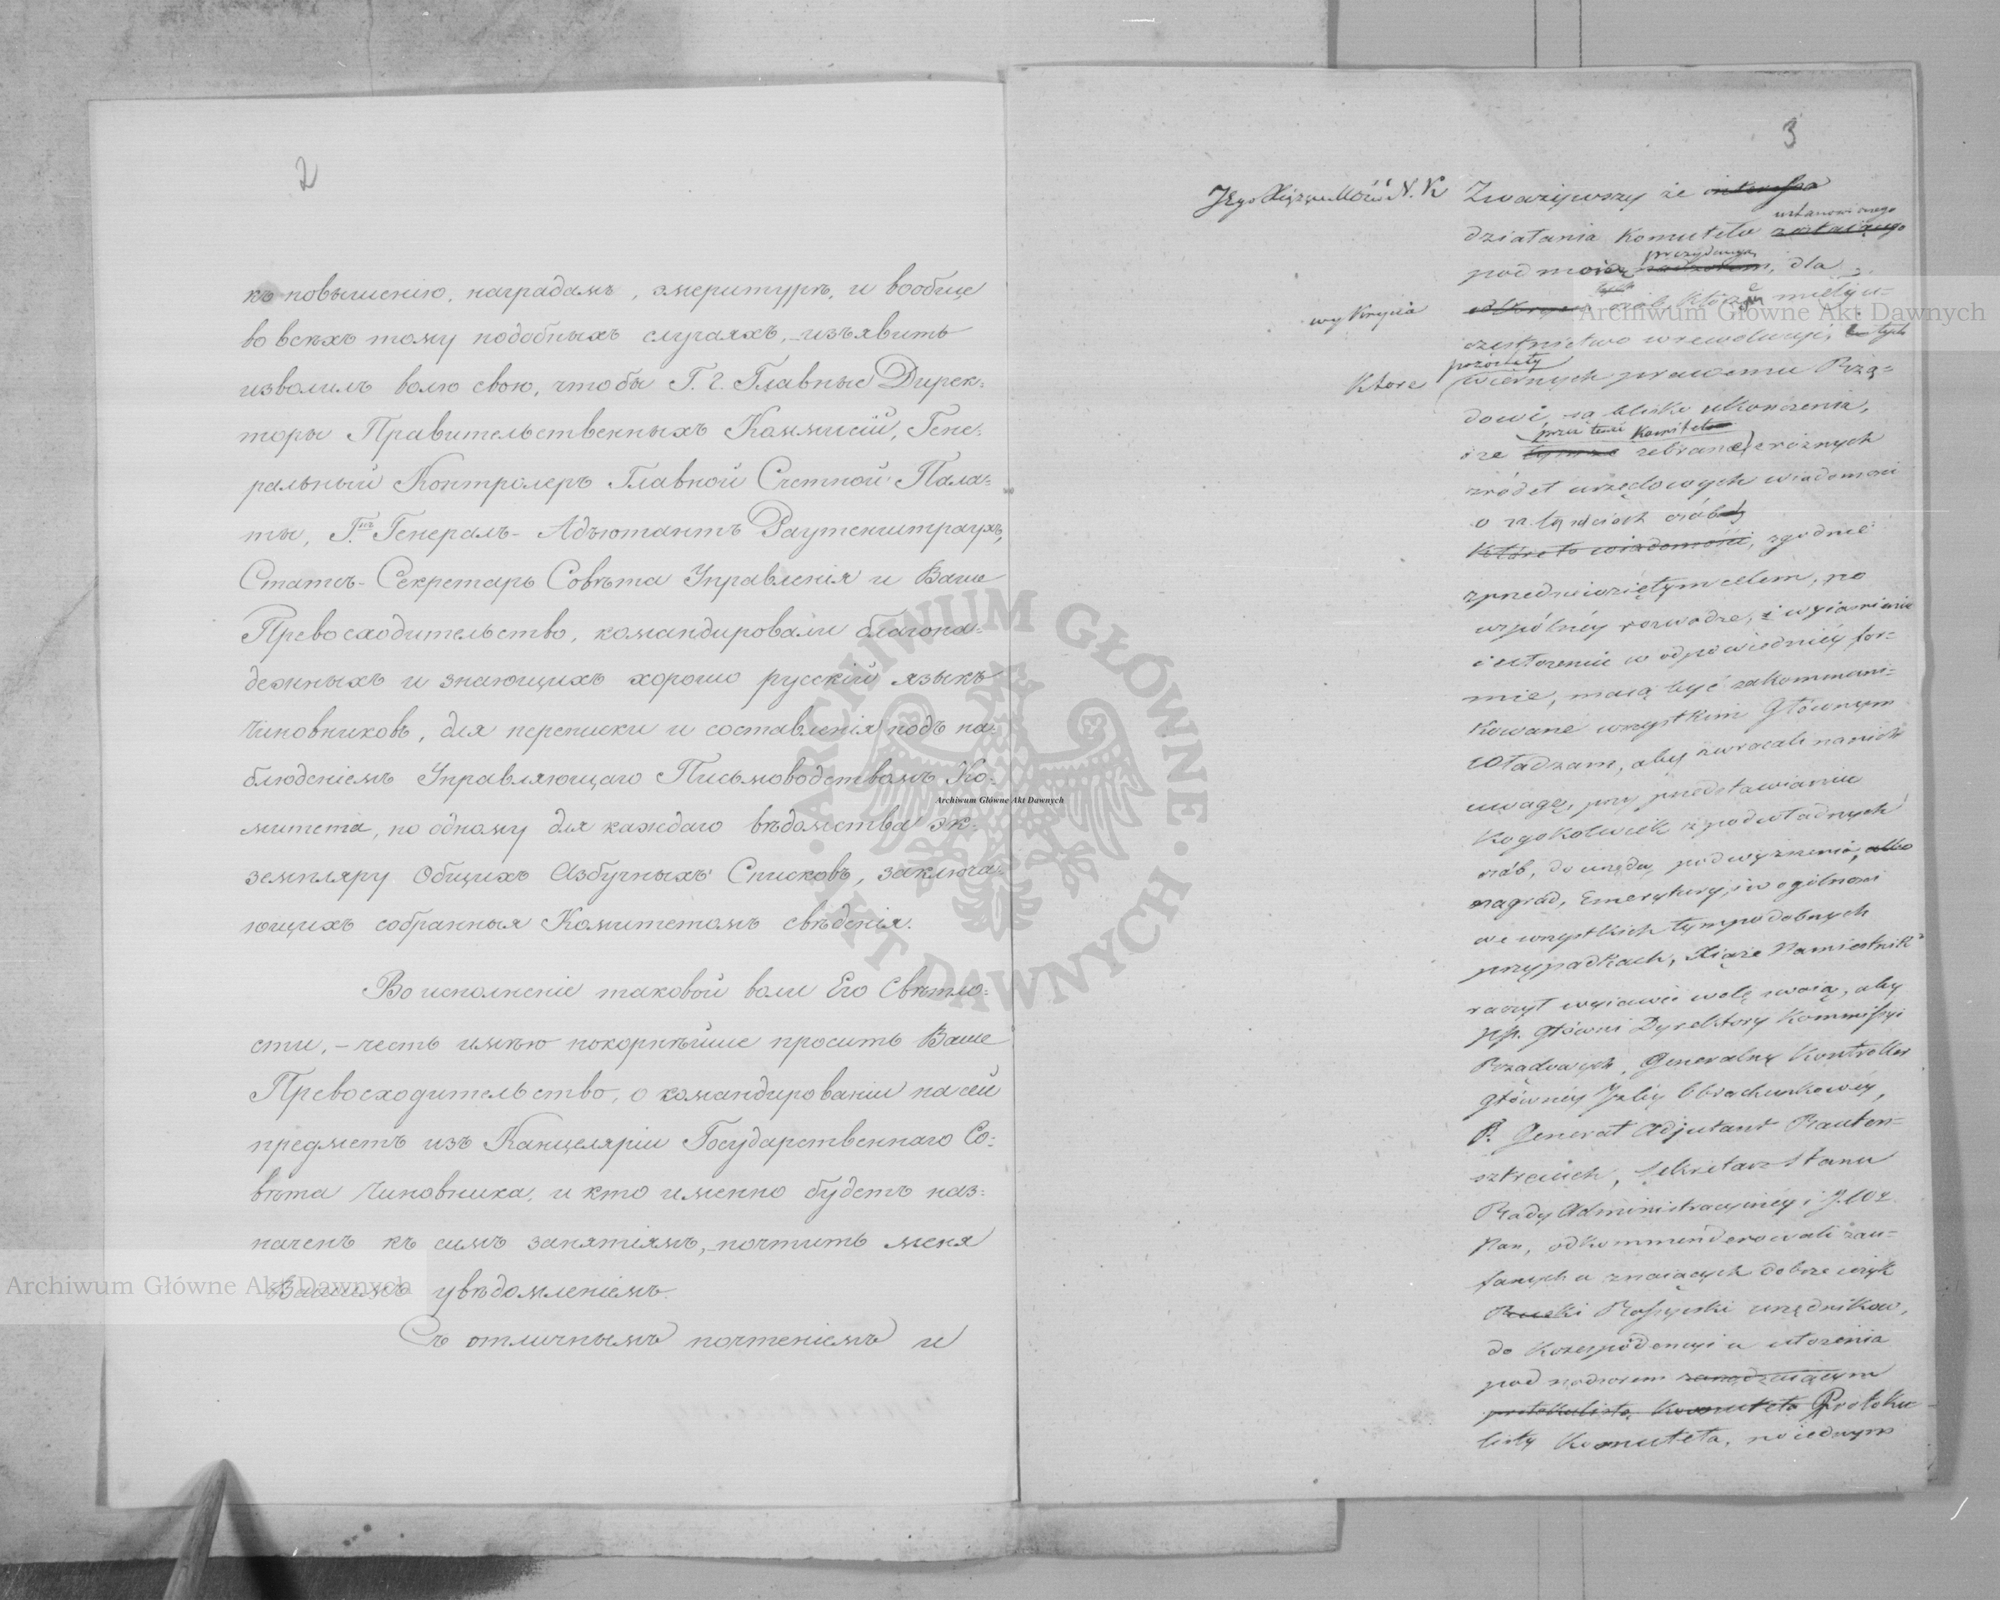 2
къ повышенію, наградамъ, эмеритурѣ, и вообще
во всѣхъ тому подобныхъ случаяхъ, изъявить
изволилъ волю свою, чтобы Г. г. Главные Дирек-
торы Правительственныхъ Коммисій, Гене-
ральный Контролеръ Главной Счетной Пала-
ты, Г.нъ Генералъ-Адъютантъ Раутенштраухъ,
Статсъ-Секретарь Совѣта Управленія и Ваше
Превосходительство, командировали благона-
дежныхъ и знающихъ хорошо русскій языкъ
чиновниковъ, для переписки и составленія подъ на-
блюденіемъ Управляющаго Письмоводствомъ Ко-
митета, по одному для каждаго вѣдомства эк-
земпляру Общихъ Азбучныхъ Списковъ, заключа-
ющихъ собранныя Комитетомъ свѣденія.
Во исполненіе таковой воли Его Свѣтло-
сти, - честь имѣю покорнѣйше просить Ваше
Превосходительство, о командированіи на сей
предметъ изъ Канцеляріи Государственнаго Со-
вѣта чиновника, и кто именно будетъ наз-
наченъ къ симъ занятіямъ, почтить меня
Вашимъ увѣдомленіемъ.
Съ отличнымъ почтеніемъ и
3
Zważywszy że
ustanowionego
działania Komitetu
pod moią dla
wykrycia osób, które mieły u-
czestnictwo w rewolucyi, tych
pozostały
Ktore wiernych prawemu Rzą-
dowi są blisko ukończenia,
przez tenże Komitet
i że zebrane z rożnych
zródeł urzędowych wiadomości
o takich osób
które to wiadomości, zgodnie
z przedsiewziętym celem, po
wspólnéy rozwadze, i wyiaśnienie
i ułożeniu w odpowiedniéy for-
mie, maią być zakommuni-
kowane wszystkim Głównym
Władzam, aby zwracali na nich
uwagę, przy przedstawianiu
kogokolwiek z podwładnych
osób, do urzędu, podwyższenia, albo
nagrad, Emerytury, i w ogólności
we wszystkich tym podobnych
przypadkach, Xiąże Namiestnik
raczył wyiawić wolę swoią, aby
JPP. Główni Dyrektorzy Kommissyi
Rządowych, Generalny Kontroller
Głównéy Izby Obrachunkowéy,
P. Generał Adjutant Rauten-
sztrauch, Sekretarz Stanu
Rady Administracyjnéy i JWW
Pan, odkommenderowali zau-
fanych a znaiących dobrze ięzyk
Ruski Rossyiski urzędnikow,
do Korespondencyi a ułożenia
pod nadzorem zarządzaiącym
protokulistą Komiteta Protoku-
listy Komiteta, po iednym
Archiwum Główne Akt Dawnych
Archiwum Główne Akt Dawnych
Archiwum Główne Akt Dawnych
ARCHIWUM GŁÓWNE AKT DAWNYCH